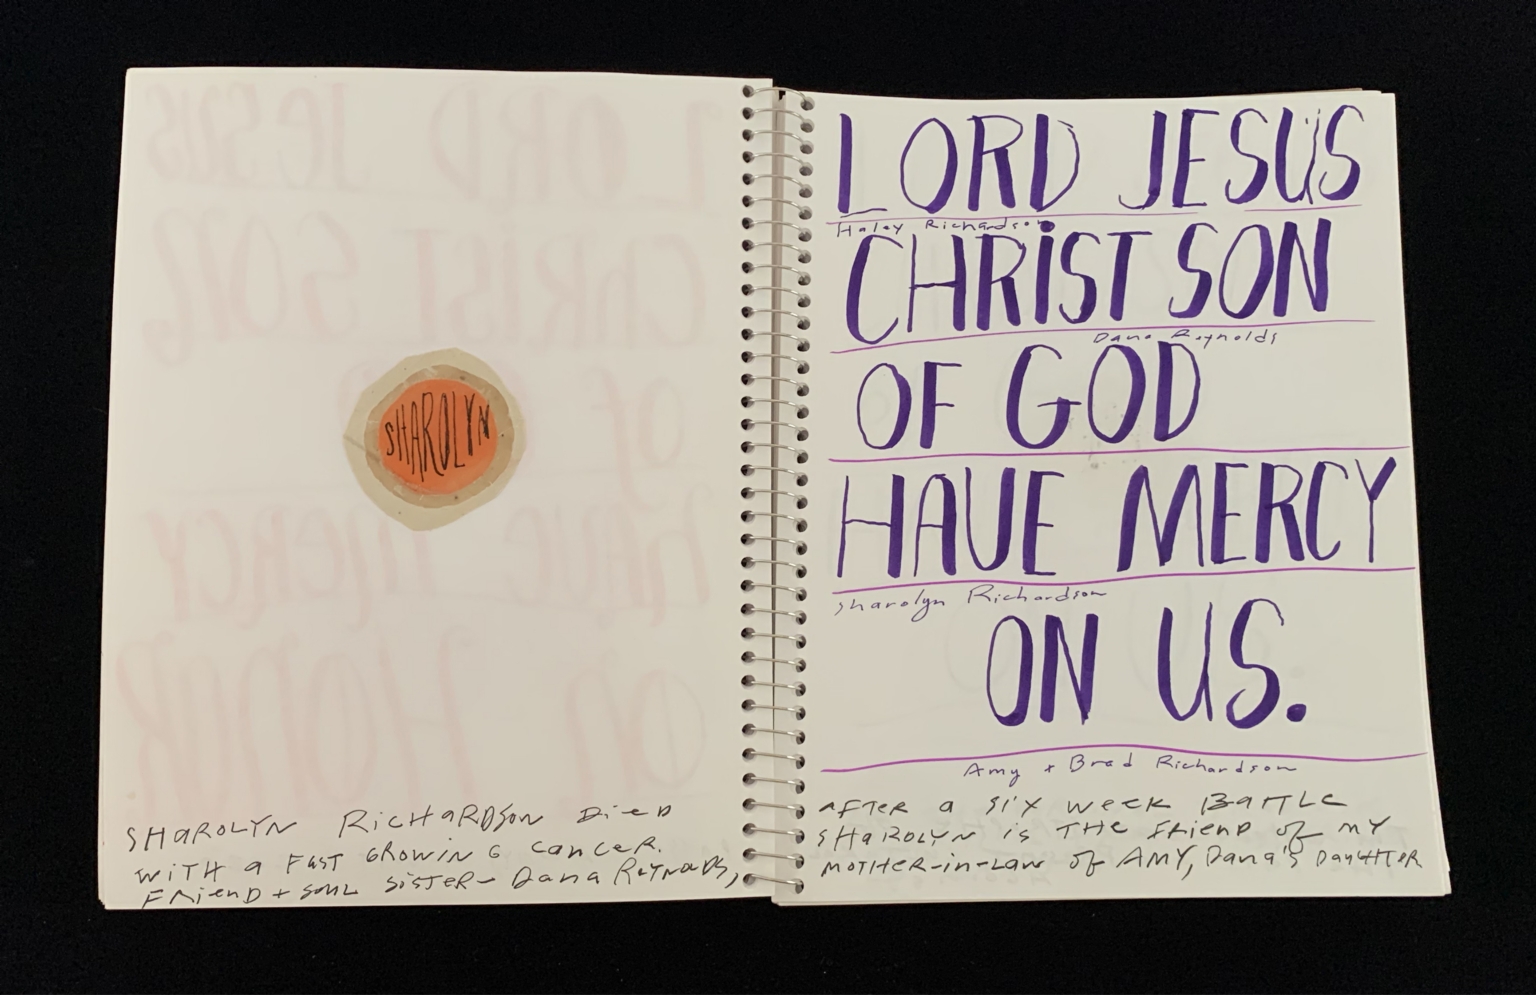 SHAROLYN
SHAROLYN RICHARDSON DIED
WITH A FAST GROWING CANCER.
FRIEND + SOUL SISTER - DANA REYNOLDS,
LORD JESUS
Haley Richardson
CHRIST SON
Dana Reynolds
OF GOD
HAVE MERCY
Sharolyn Richardson
ON US.
Amy + Brad Richardson
AFTER A SIX WEEK BATTLE
SHAROLYN IS THE FRIEND OF MY
MOTHER-IN-LAW OF AMY, DANA'S DAUGHTER